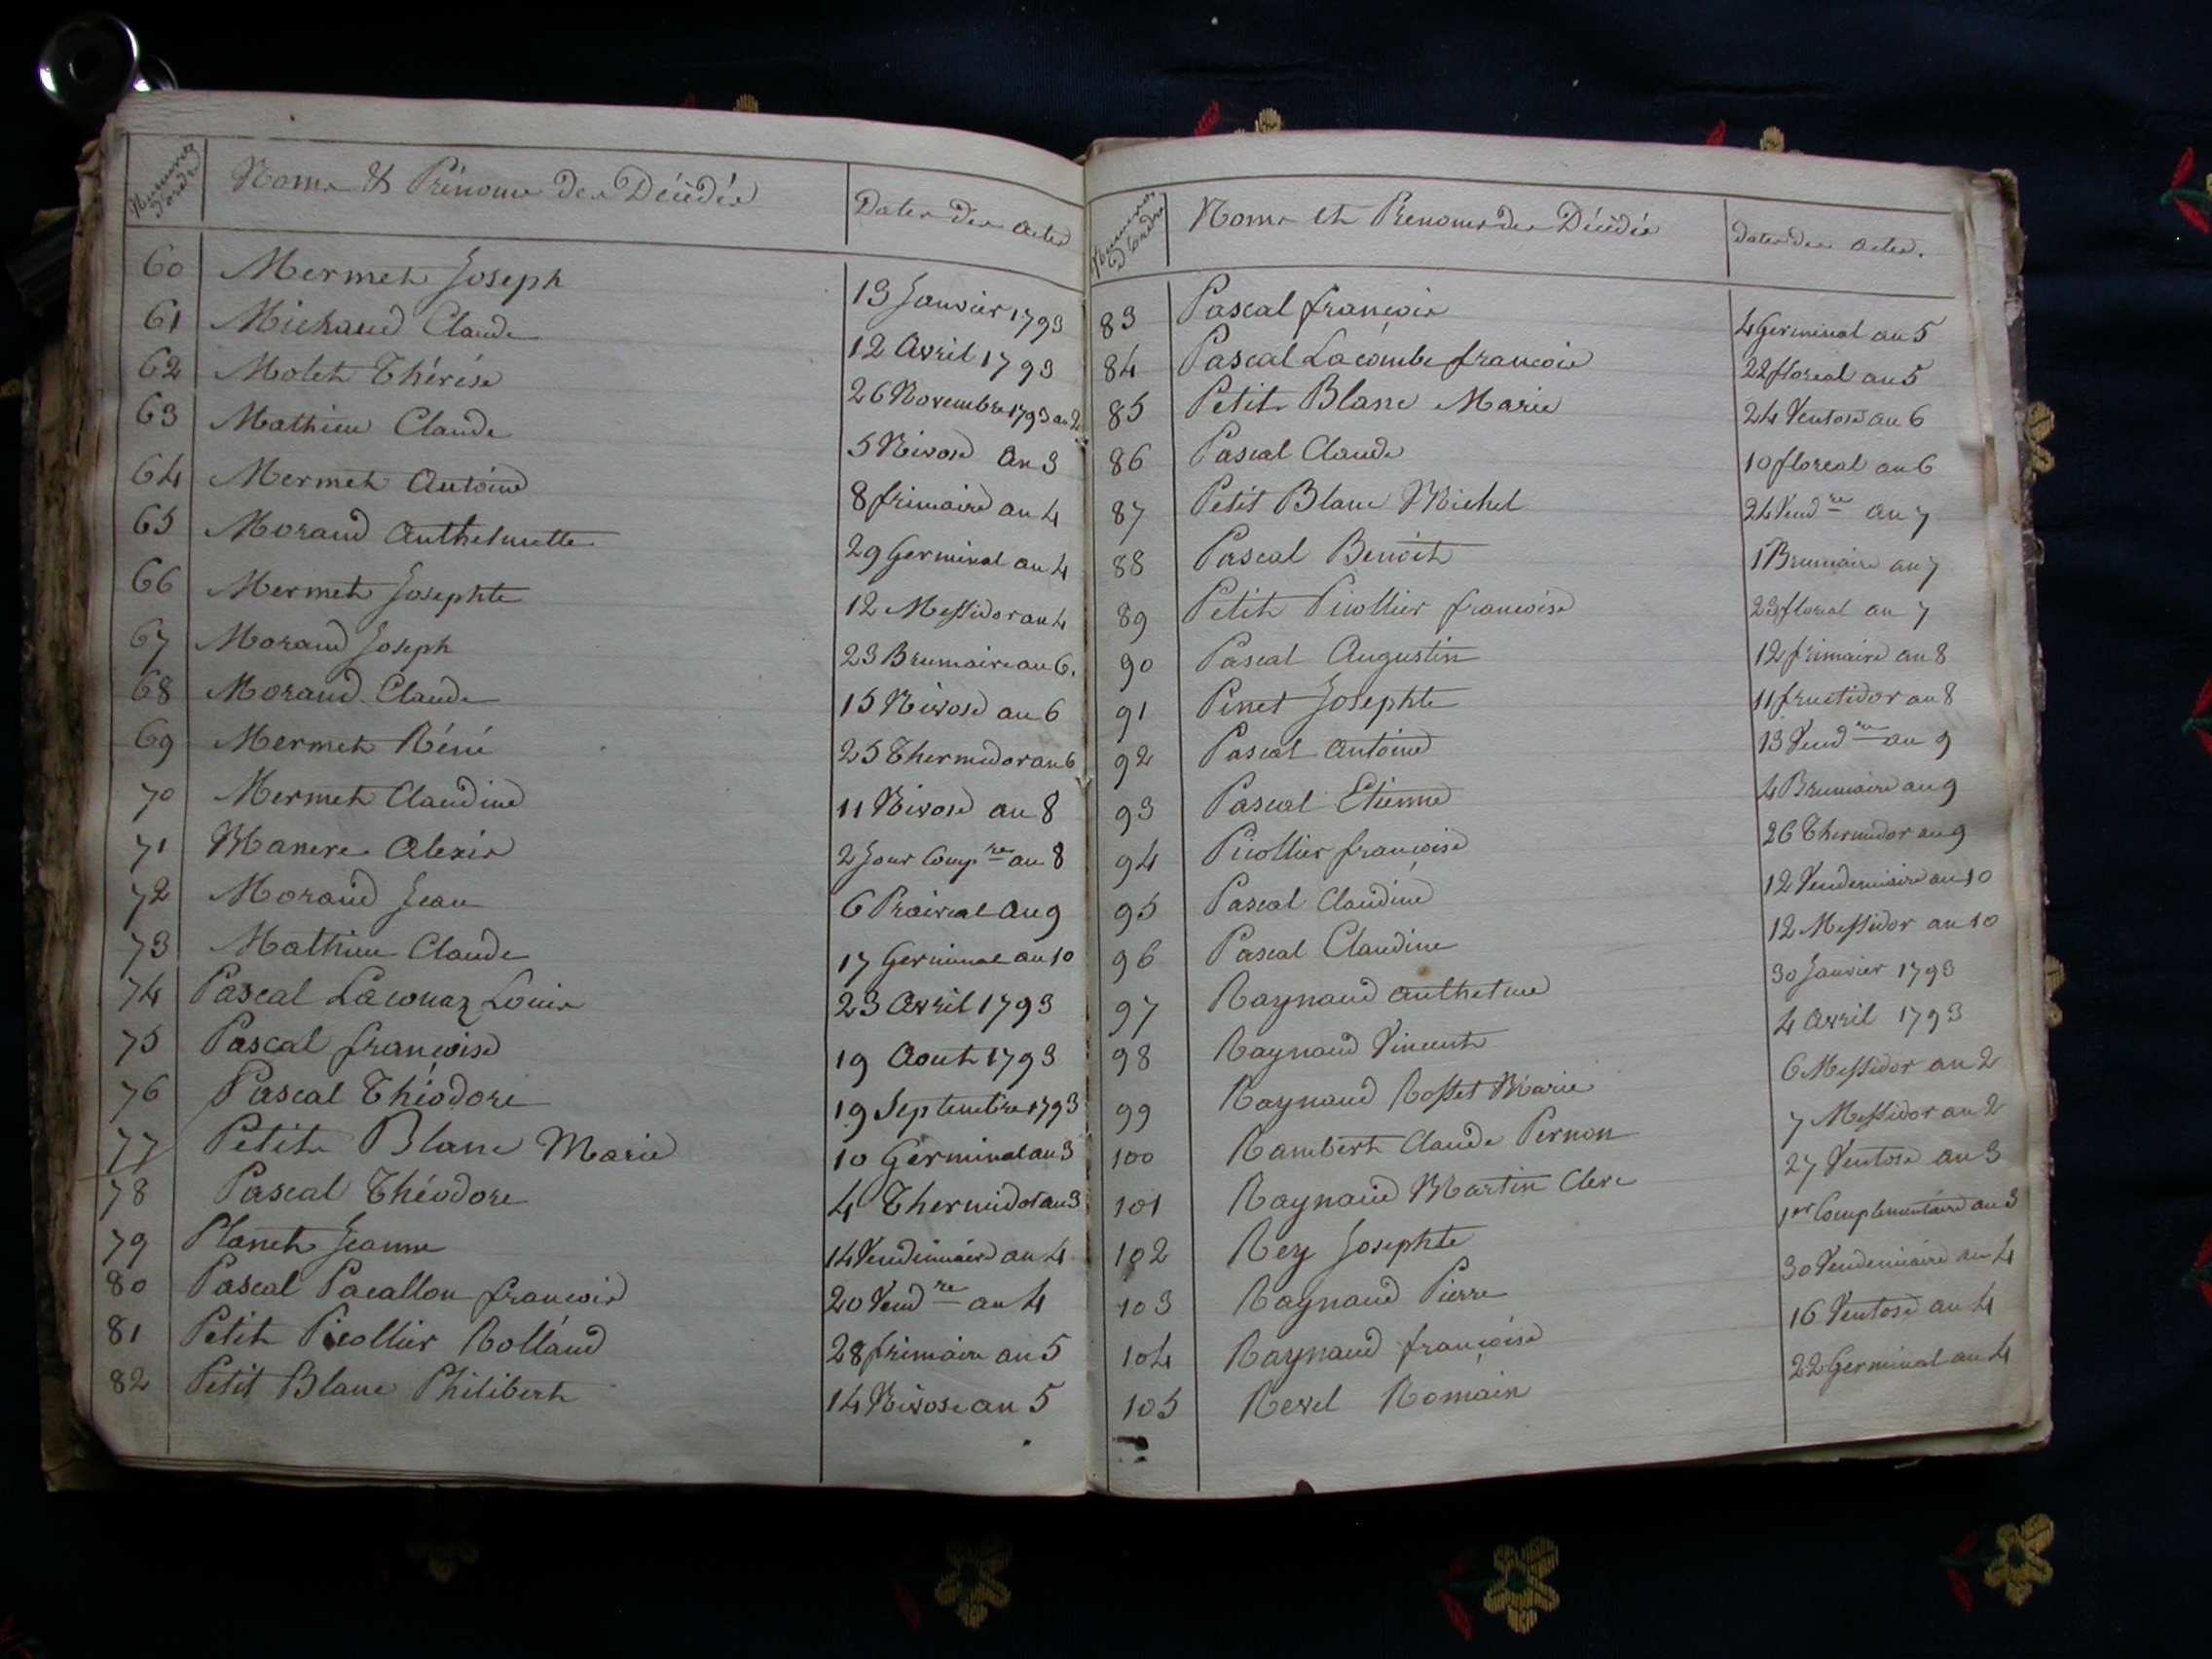 Numeros d'ordre Noms & Prénoms des Décédés Dates des actes
60 Mermet Joseph 13 Janvier 1793
61 Michaud Claude 12 Avril 1793
62 Molet Thérèse 26 Novembre 1793 an 2
63 Mathieu Claude 5 Nivose an 3
64 Mermet Antoine 8 frimaire an 4
65 Morand Anthelmette 29 Germinal an 4
66 Mermet Josephte 12 Messidor an 4
67 Morand Joseph 23 Brumaire an 6.
68 Morand Claude 15 Nivose an 6
69 Mermet Réné 25 Thermidor an 6
70 Mermet Claudine 11 Nivose an 8
71 Manere Alexis 2 Jour Comp re an 8
72 Morand Jean 6 Prairial an 9
73 Mathieu Claude 17 Germinal an 10
74 Pascal Laconaz Louis 23 Avril 1793
75 Pascal françoise 19 Aout 1793
76 Pascal Théodore 19 Septembre 1793
77 Petit Blanc Marie 10 Germinal an 3
78 Pascal Théodore 4 Thermidor an 3
79 Planet Jeanne 14 Vendemiaire an 4
80 Pascal Pacallon francois 20 Vend re an 4
81 Petit Picollier Rolland 28 frimaire an 5
82 Petit Blanc Philibert 14 Nivose an 5
Numeros d'ordre Noms et Prenoms des Décédés Dates des actes.
83 Pascal francois 4 Germinal an 5
84 Pascal Lacombe francois 22 floreal an 5
85 Petit Blanc Marie 24 Ventose an 6
86 Pascal Claude 10 floreal an 6
87 Petit Blanc Michel 24 Vend re an 7
88 Pascal Benoit 1 Brumaire an 7
89 Petit Picollier francoise 23 floreal an 7
90 Pascal Augustin 12 frimaire an 8
91 Pinet Josephte 11 fructidor an 8
92 Pascal Antoine 13 Vend re an 9
93 Pascal Etienne 4 Brumaire an 9
94 Picollier francoise 26 Thermidor an 9
95 Pascal Claudine 12 Vendemiaire an 10
96 Pascal Claudine 12 Messidor an 10
97 Raynaud Anthelme 30 Janvier 1793
98 Raynaud Vincent 4 Avril 1793
99 Raynaud Rosset Marie 6 Messidor an 2
100 Rambert Claude Pernon 7 Messidor an 2
101 Raynaud Martin Clerc 27 Ventose an 3
102 Rey Josephte 1er Complementaire an 3
103 Raynaud Pierre 30 Vendemiaire an 4
104 Raynaud françoise 16 Ventose an 4
105 Revel Romain 22 Germinal an 4